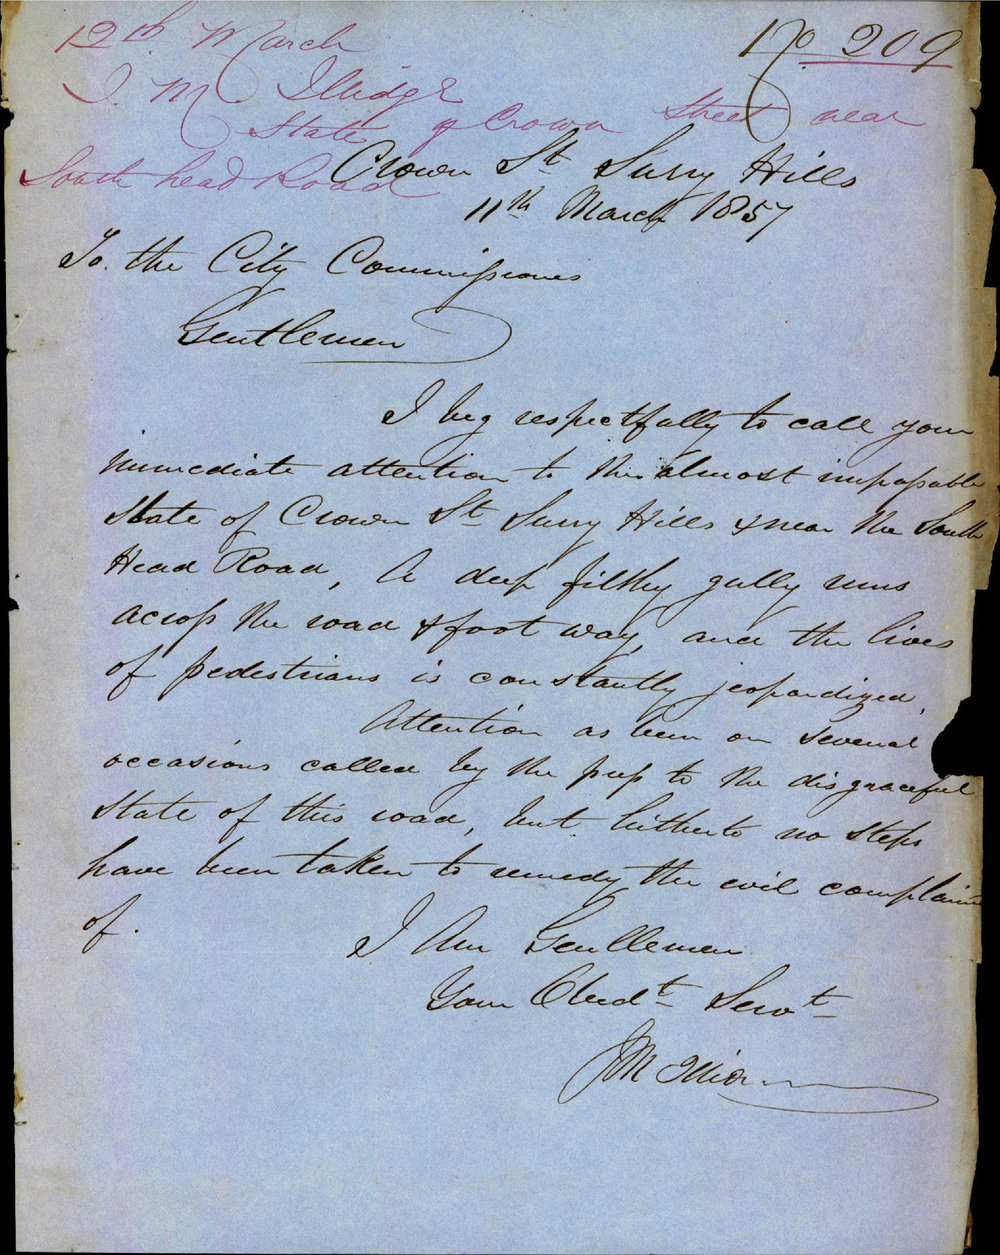 12th March
No 209
J. M. Illidge
State of Crown Street near
South head Road
Crown St Surry Hills
11th March 1857
To the City Commissioners
Gentlemen
I beg respectfully to call your
immediate attention to the almost impassable
state of Crown St Surry Hills & near the South
Head Road, A deep filthy gully runs
across the road & foot way, and the lives
of pedestrians is constantly jeopardized,
Attention as been on several
occasions called by the press to the disgraceful
state of this road, but hitherto no steps
have been taken to remedy the evil complained
of.
I Am Gentlemen
Your Obedt Servt
J M